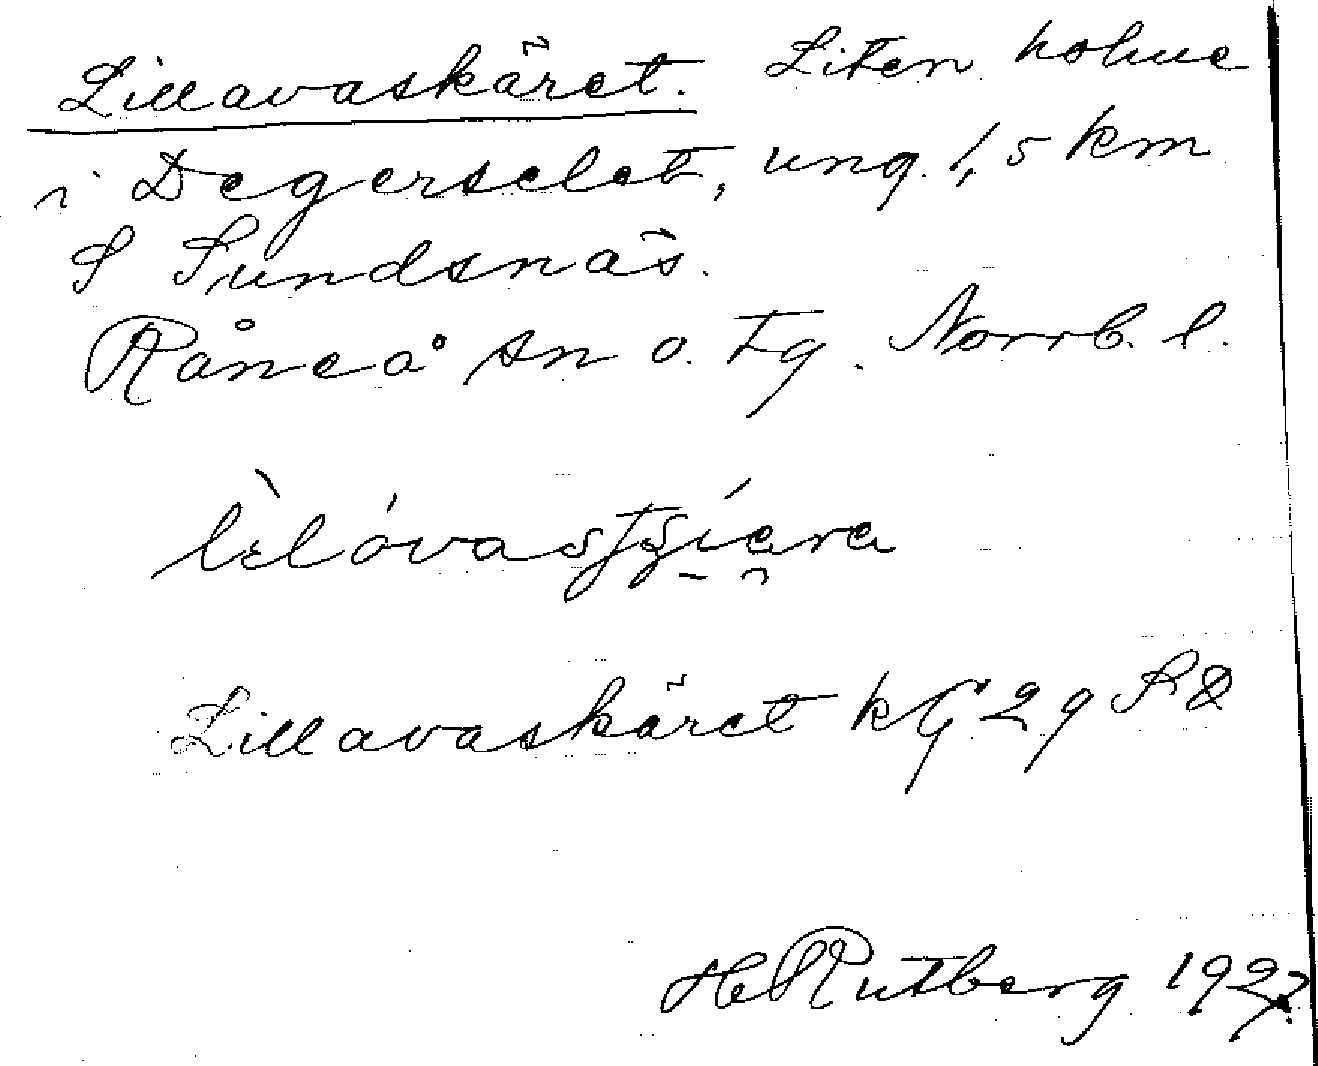 Lillavaskäret. Liten holme
i Degerselet, ung. 1,5 km
S Sundsnäs.
Råneå sn o. tg. Norrb. l.
Lillavaskäret kG 29 SO
H Rutberg 1927